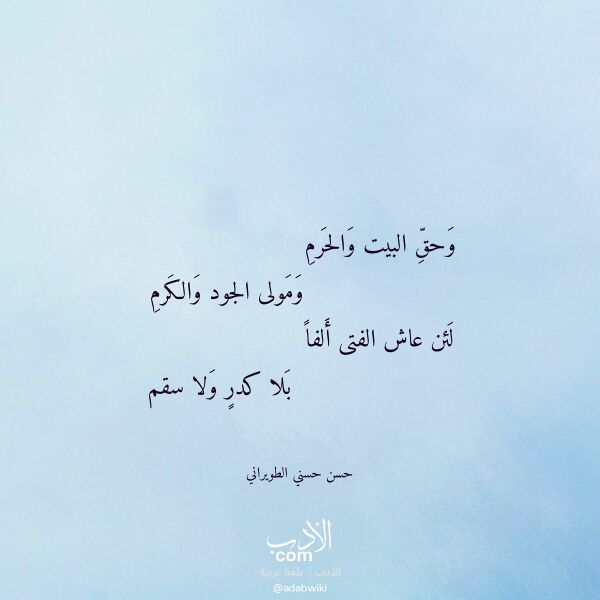 وَحقِّ البيت وَالحَرمِ
وَمَولى الجود وَالكَرمِ
لَئن عاش الفتى أَلفاً
بَلا كدرٍ وَلا سقم
حسن حسني الطويراني
الأدب
com
الأدب .. بلغة عربية
@adabwiki